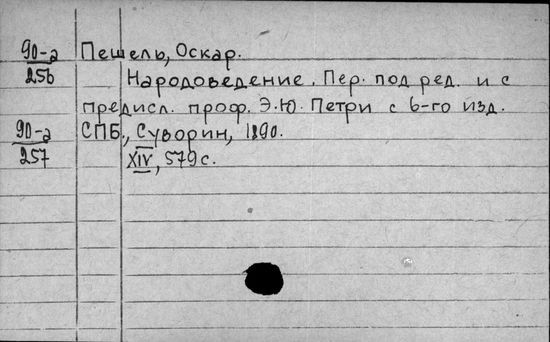 90-а Пешель, Оскар.
256 Народоведение. Пер. под ред. и с
предисл. проф. Э.Ю. Петри с 6-го изд.
90-а СПБ., Суворин, 1890.
257 XIV, 579 с.